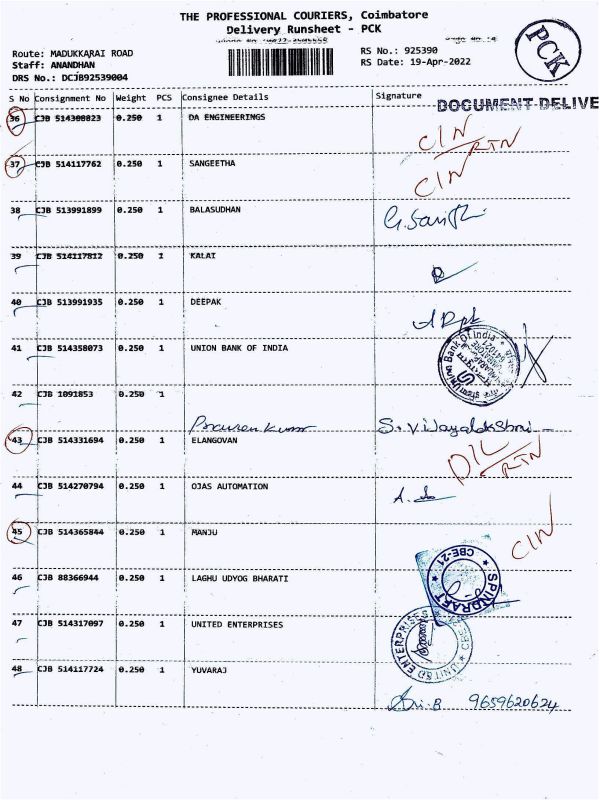 THE PROFESSIONAL COURIERS, Coimbatore
Delivery Runsheet - PCK
PCK
Route: MADUKKARAI ROAD RS No.: 925390
Staff: ANANDHAN RS Date: 19-Apr-2022
DRS No.: DCJB92539004
S No Consignment No Weight PCS Consignee Details Signature
DOCUMENT DELIVE
36 CJB 514308823 0.250 1 DA ENGINEERINGS
CIN RTN
37 CJB 514117762 0.250 1 SANGEETHA
CIN
38 CJB 513991899 0.250 1 BALASUDHAN
39 CJB 514117812 0.250 1 KALAI
40 CJB 513991935 0.250 1 DEEPAK
41 CJB 514358073 0.250 1 UNION BANK OF INDIA
Union Bank Of India
42 CJB 1091853 1
S. Vijayalakshmi
43 CJB 514331694 0.250 1 ELANGOVAN
RTN
44 CJB 514270794 0.250 1 OJAS AUTOMATION
45 CJB 514365844 0.250 1 MANJU
CIN
46 CJB 88366944 0.250 1 LAGHU UDYOG BHARATI
SPINDRAFT CBE-21
47 CJB 514317097 0.250 1 UNITED ENTERPRISES
UNITED ENTERPRISES
48 CJB 514117724 0.250 1 YUVARAJ
9659620624